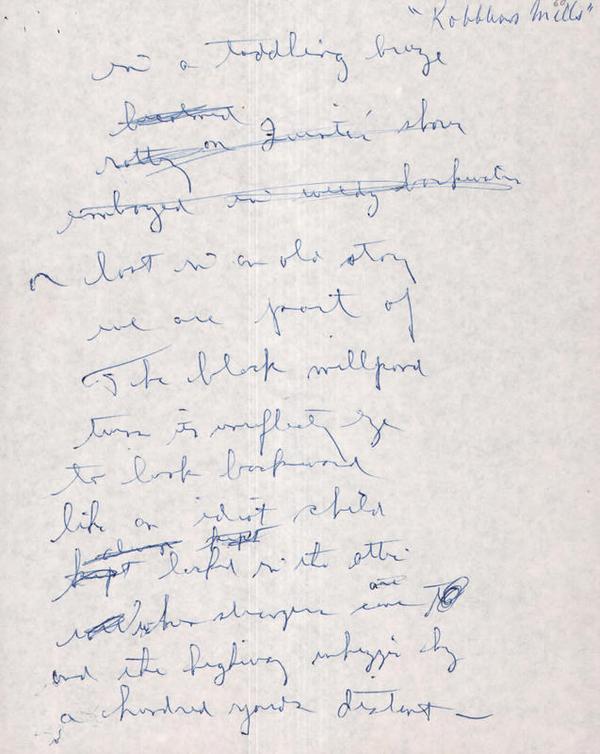 "Robbins Mills"
in a toddling breeze
rotting on Quester's shore
embayed in weedy backwater
or lost in an old story
we are part of
The black millpond
turns its unreflecting eye
to look backward
like an idiot child
kept locked in the attic
when strangers come
and the highway whizzes by
a hundred yards distant—